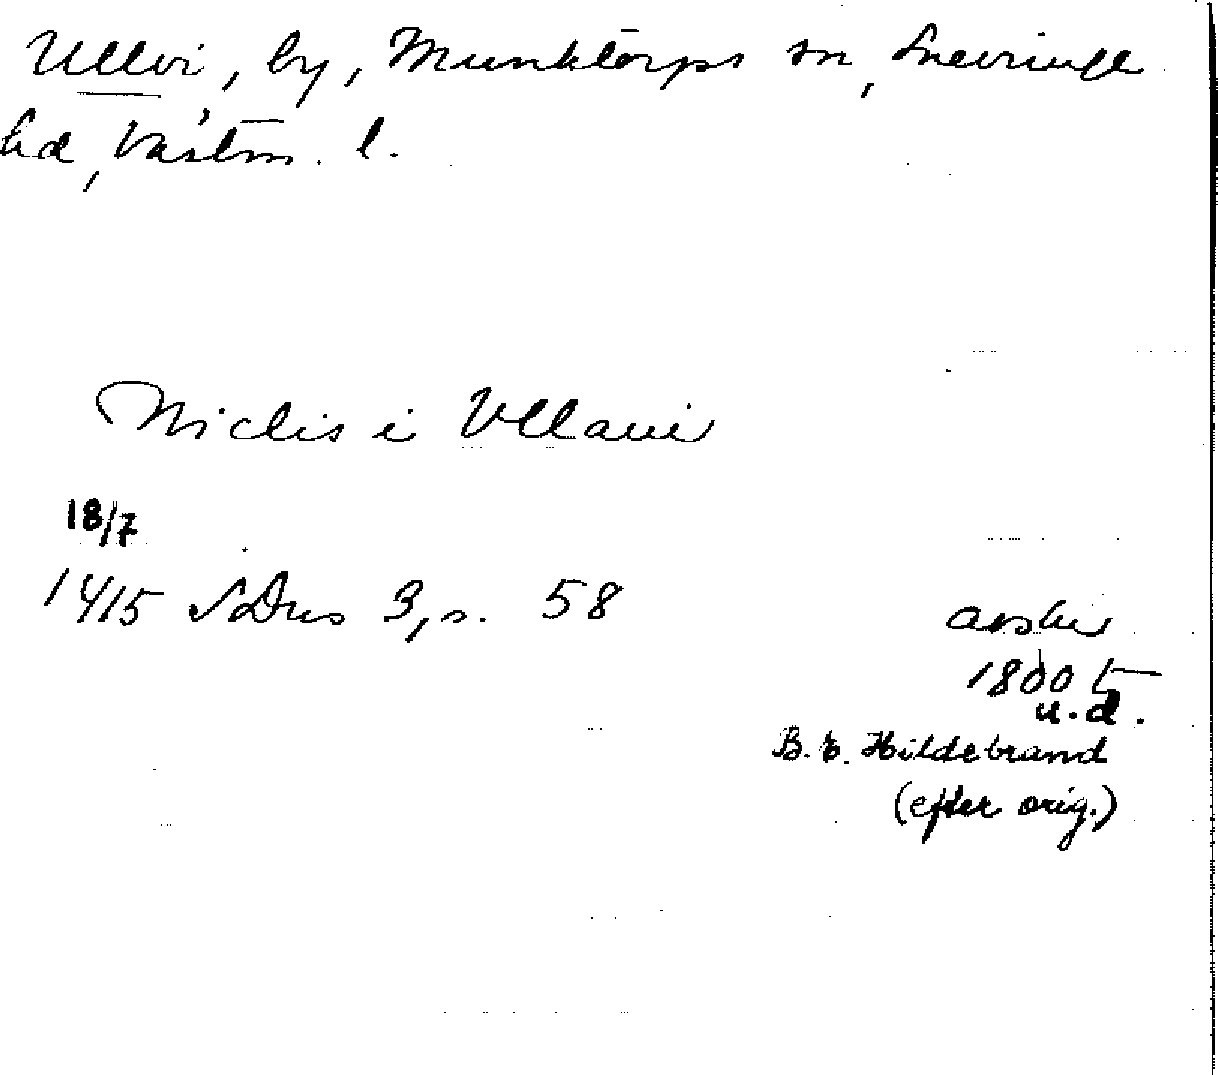 Ullvi, by, Munktorps sn, Snevringe
hd, Västm. l.
Niclis i Vllaui
18/7
1415 SDns 3, s. 58
avskr
1800 t
u.d.
B. E. Hildebrand
(efter orig.)